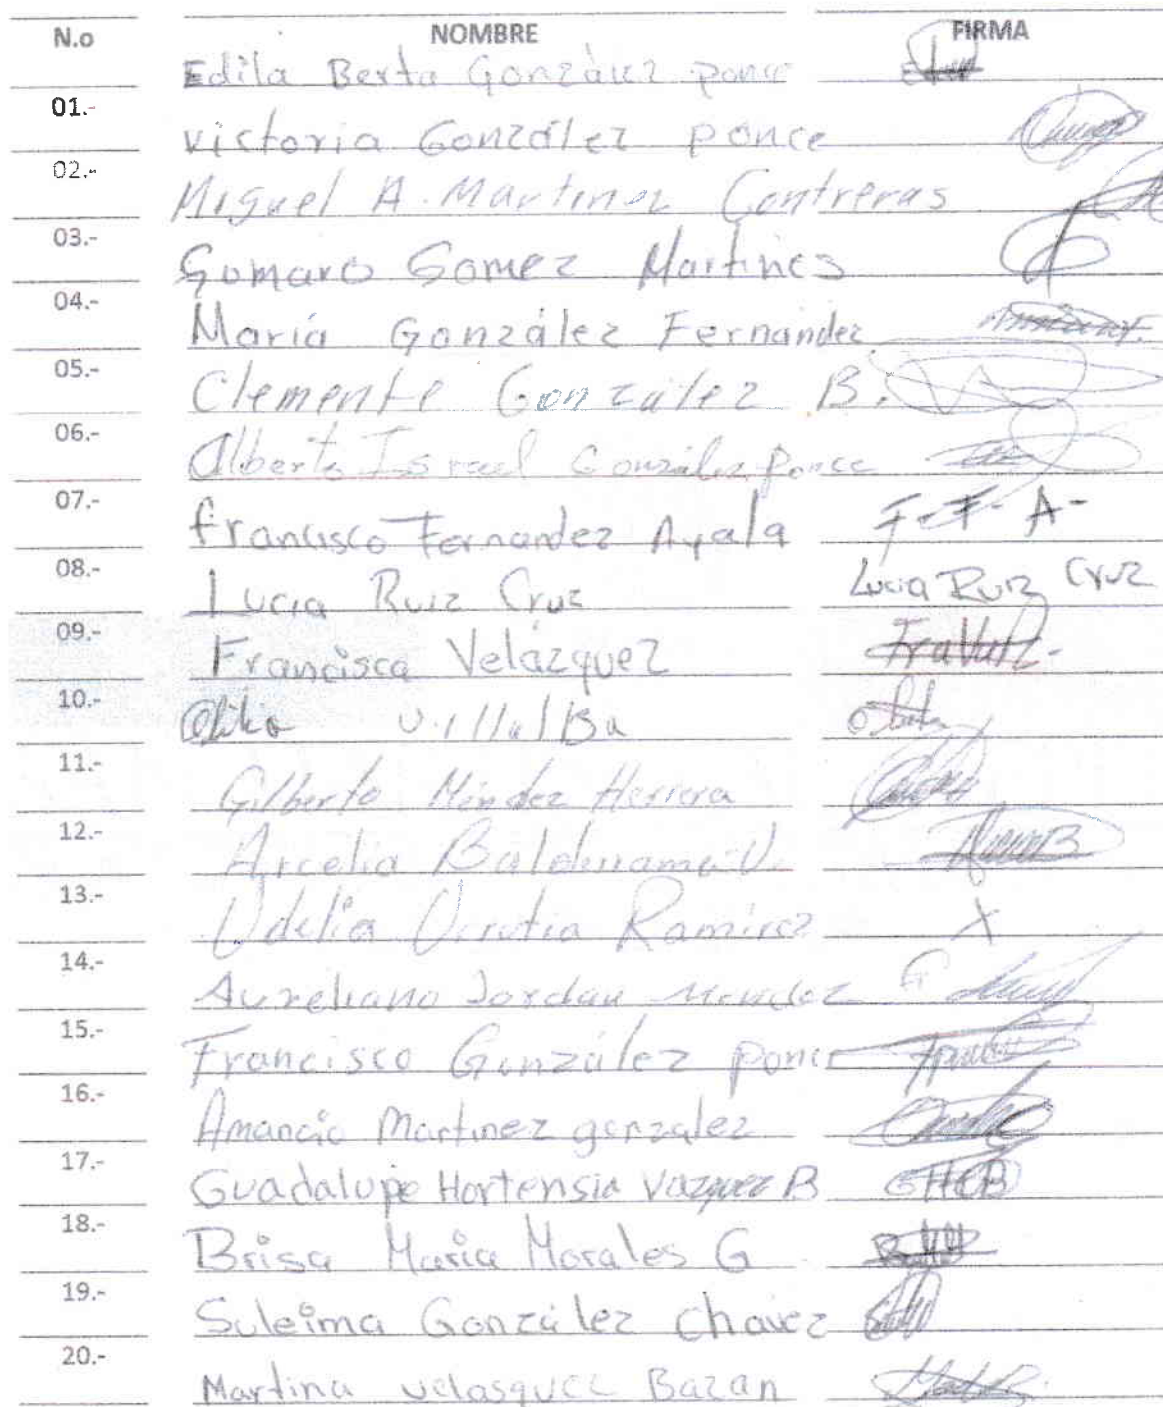 N.o NOMBRE FIRMA
Edila Berta González ponce
01.-
victoria González ponce
02.-
Miguel A. Martinez Contreras
03.-
Gomaro Gomez Martines
04.-
María González Fernández
05.-
Clemente González B.
06.-
Alberto Israel González Ponce
07.-
francisco Fernandez Ayala F-F-A-
08.-
Lucia Ruiz Cruz Lucia Ruiz Cruz
09.-
Francisca Velázquez
10.-
Villalba
11.-
Gilberto Méndez Herrera
12.-
Arcelia Balderrama V.
13.-
Odelia Urrutia Ramírez X
14.-
Aureliano Jordan Mendez G
15.-
Francisco González ponce
16.-
Amancio Martinez gonzalez
17.-
Guadalupe Hortensia Vazquez B
18.-
Brisa Maria Morales G
19.-
Suleima González chavez
20.-
Martina velasquez Bazan